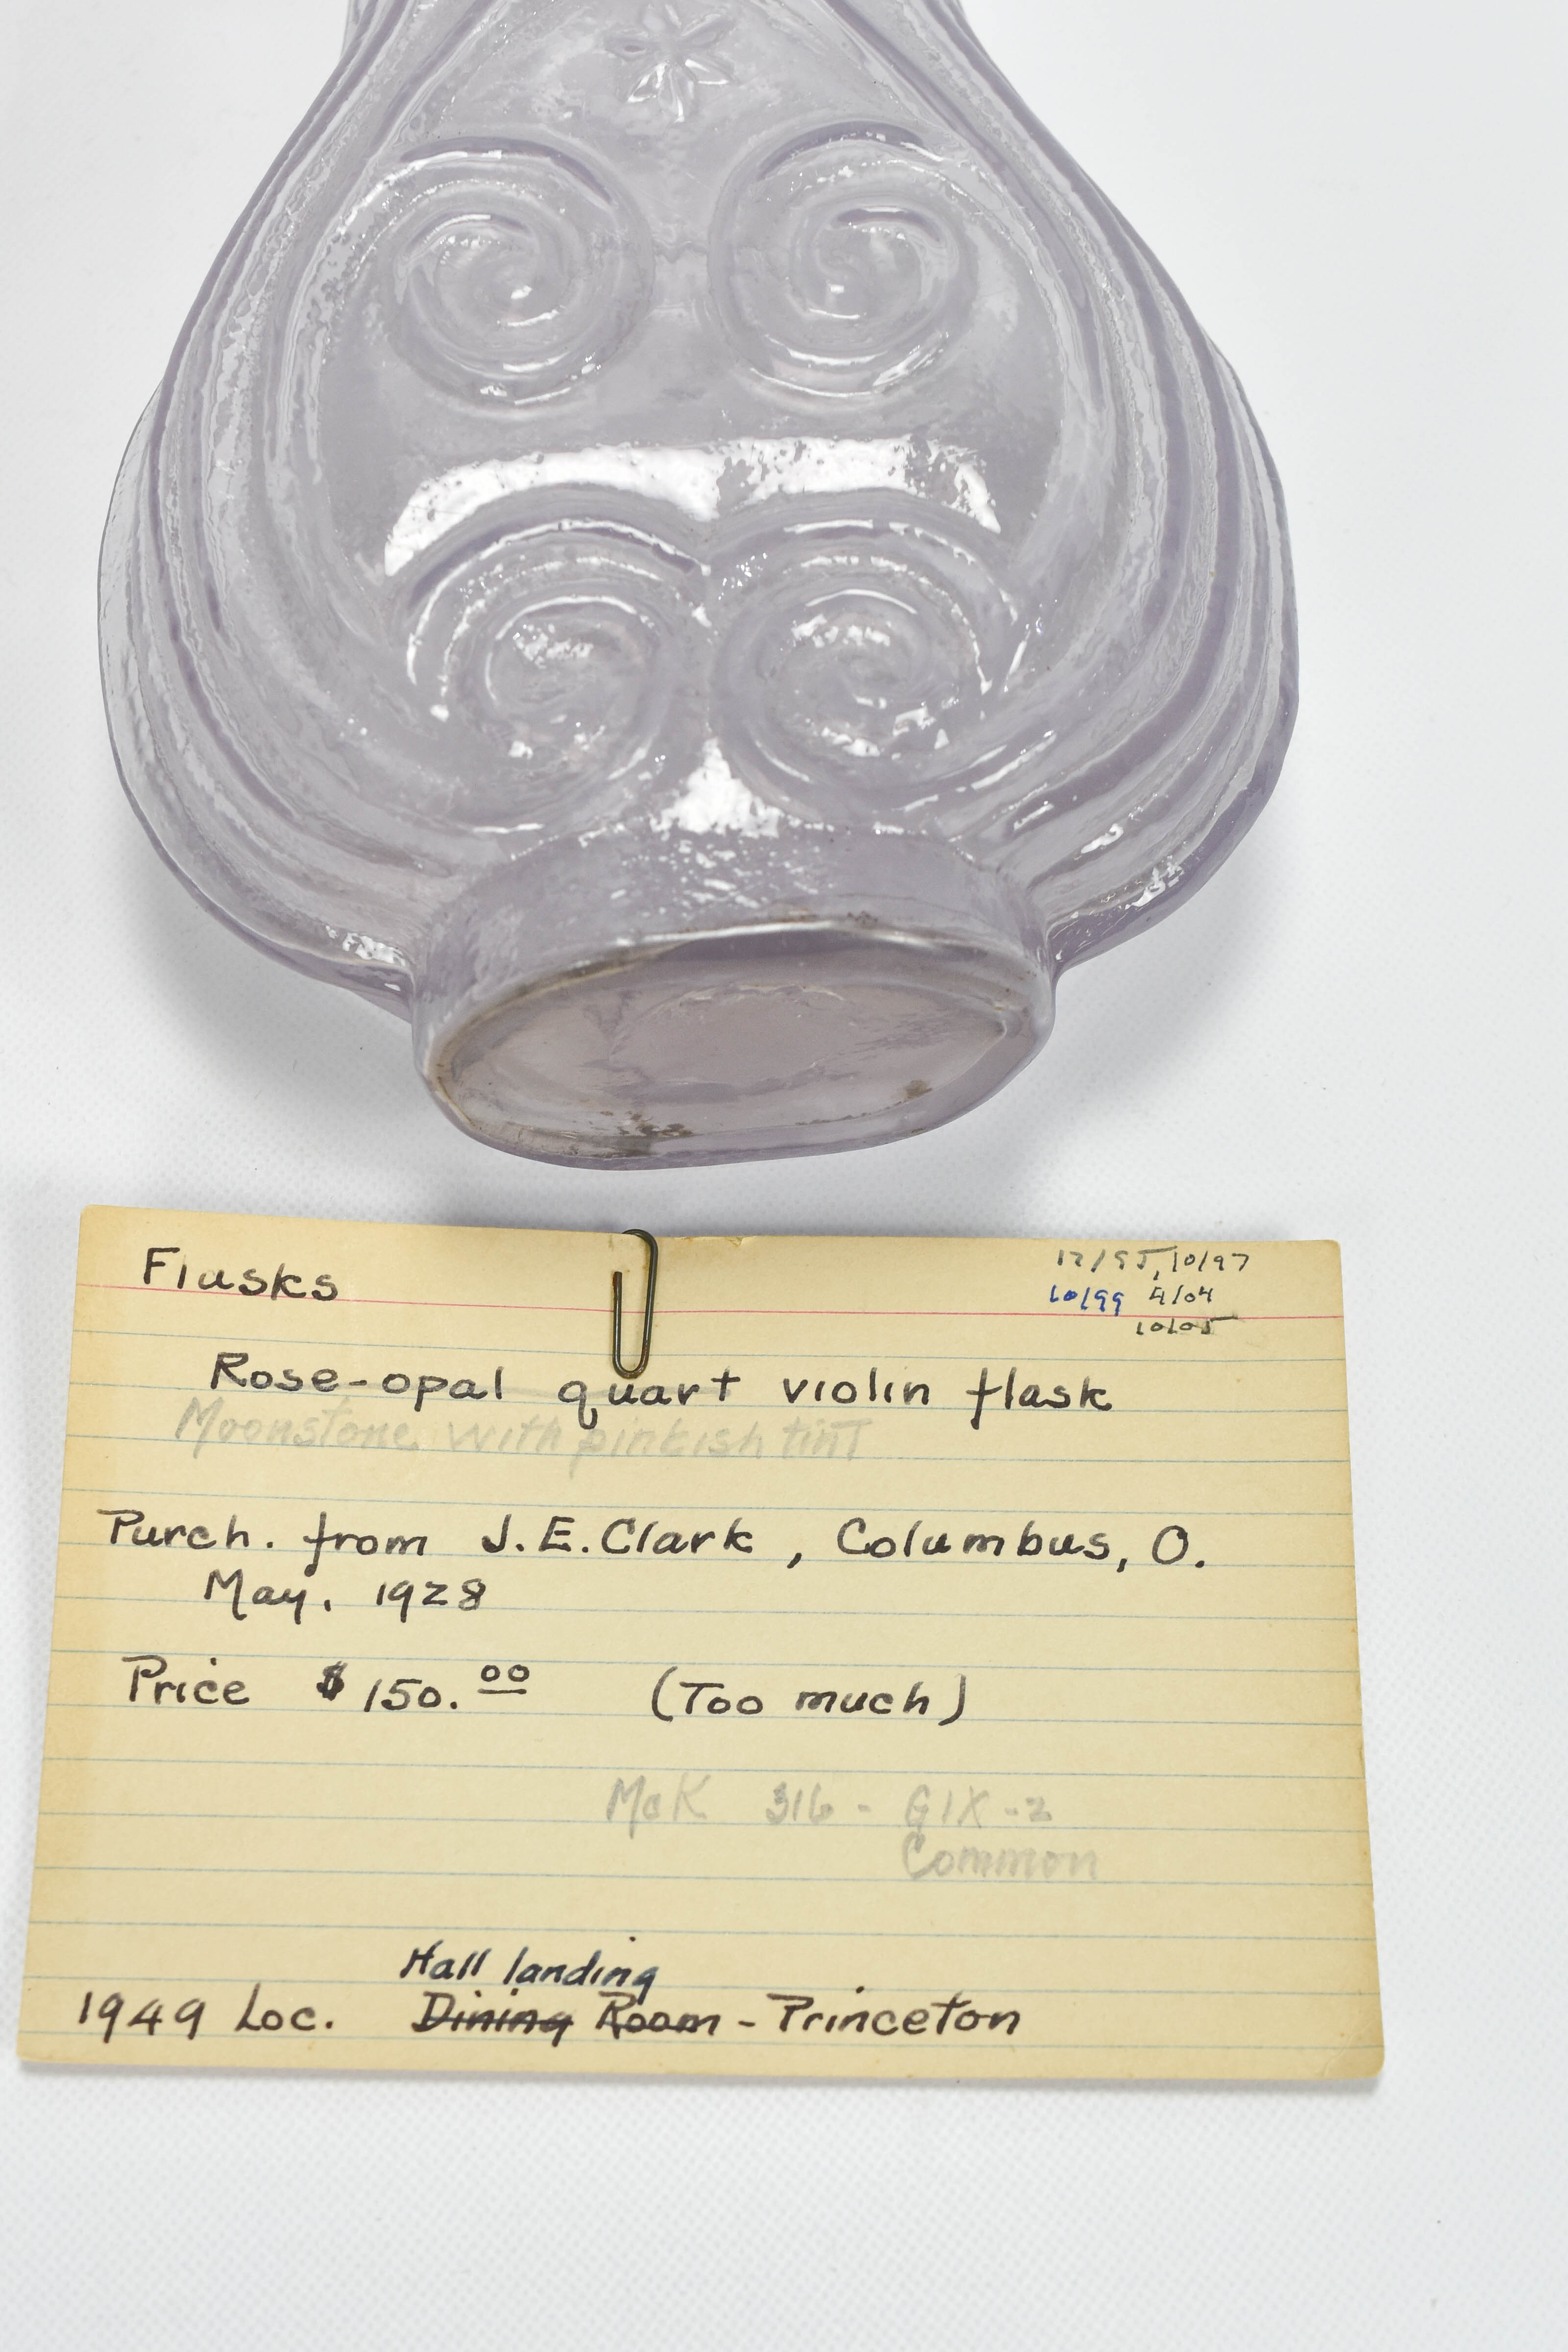 Flasks
12/95, 10/97
10/99 4/04
10/05
Rose-opal quart violin flask
Moonstone with pinkish tint
Purch. from J.E. Clark, Columbus, O.
May, 1928
Price $150.00 (Too much)
McK 316 - GIX-2
Common
Hall landing
1949 Loc. Dining Room - Princeton